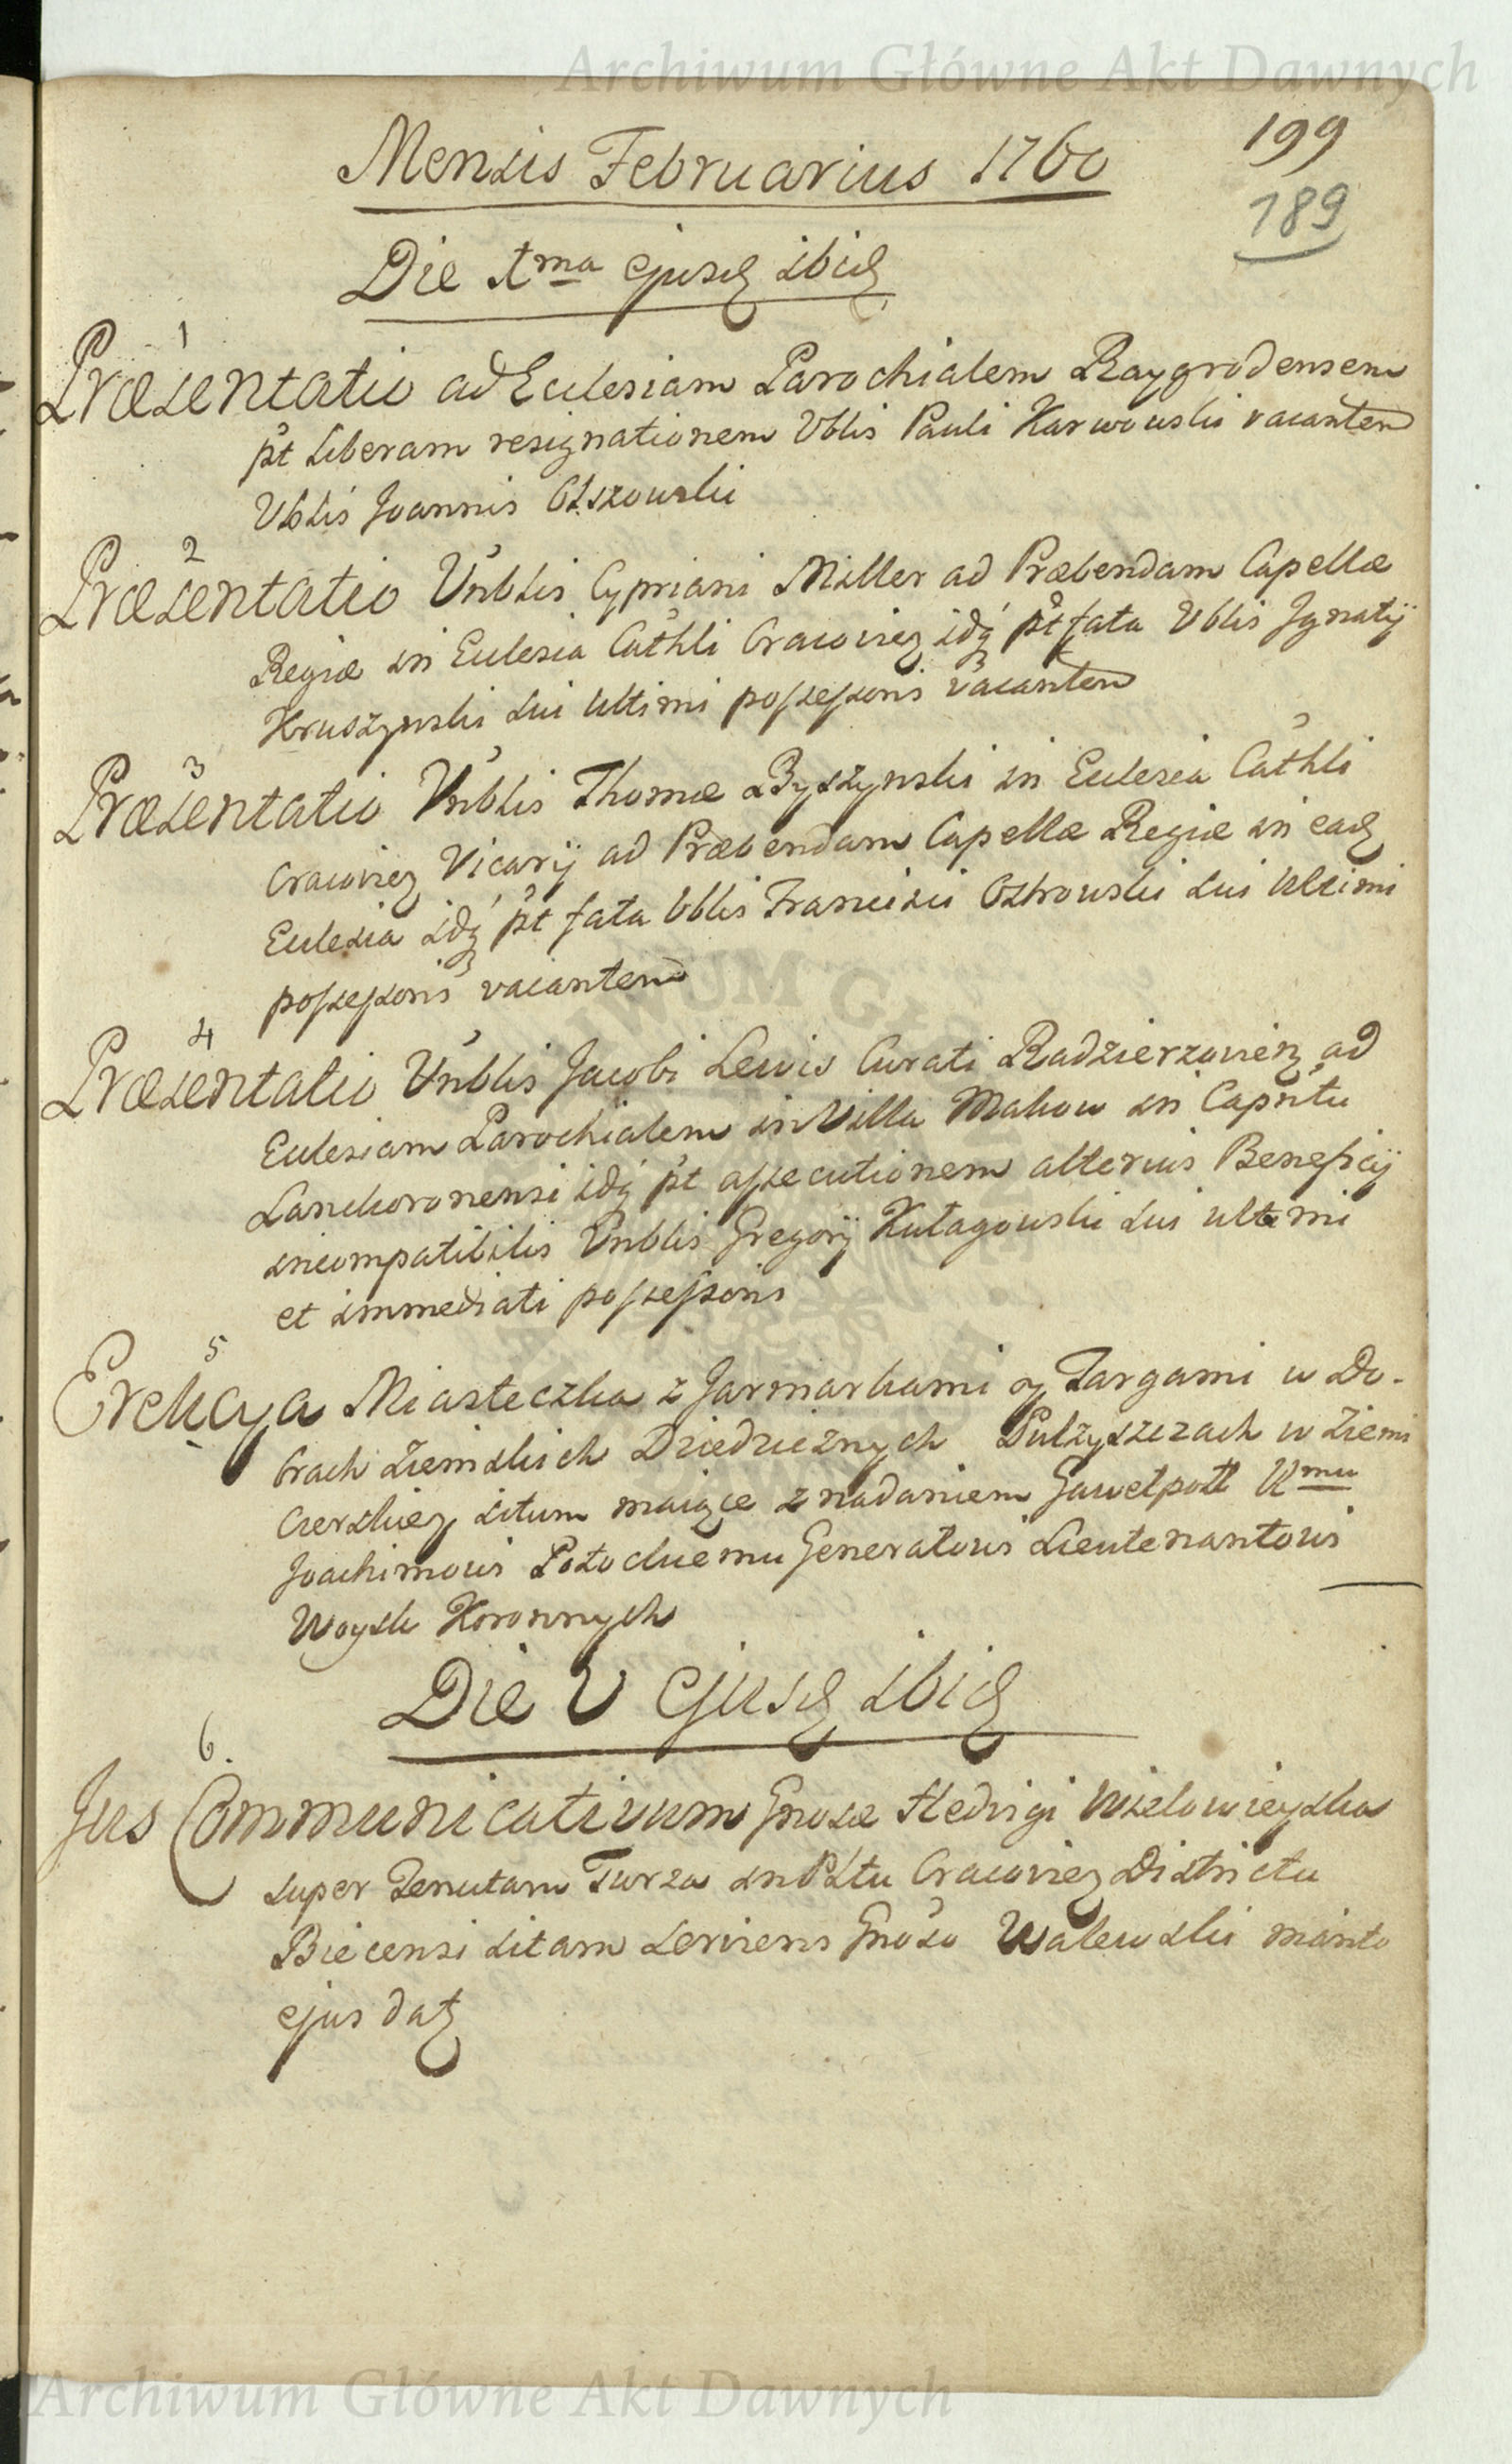 Archiwum Główne Akt Dawnych
199
Mensis Februarius 1760
189
Die 1ma ejusd ibid
1
Præsentatio ad Ecclesiam Parochialem Raygrodensem
pt liberam resignationem Vblis Pauli Karwowski vacantem
Vblis Joannis Olszowski
2
Præsentatio Vnblis Cypriani Miller ad Præbendam Capellæ
Regiæ in Ecclesia Cathli Cracovien idq pt fata Vblis Jgnatij
Kruszynski sui ultimi possessoris vacantem
3
Præsentatio Vnblis Thomæ Byszynski in Ecclesia Cathli
Cracovien Vicarij ad Præbendam Capellæ Regiæ in ead
Ecclesia idq pt fata Vblis Francisci Ostrowski sui ultimi
possessoris vacantem
4
Præsentatio Vnblis Jacobi Lewis Curati Radzierzovien ad
Ecclesiam Parochialem in Villa Makow in Capntu
Lanckoronensi idq pt assecutionem alterius Beneficij
incompatibilis Vnblis Gregorij Kułagowski sui ultimi
et immediati possessoris
5
Erekcya Miasteczka z Jarmarkami y Targami w Do-
brach Ziemskich Dziedzicznych w Ziemi
Czerskiey situm maiące z nadaniem
Joachimowi Potockiemu Generałowi Lieutenantowi
Woysk Koronnych
Die V ejusd ibid
6.
Jus Communicativum Gnosæ Hedvigi Wielowieyska
super Tenutam Turza in Pltu Cracovien Districtu
Biecensi sitam serviens Gnoso Walewski marito
ejus dat
Archiwum Główne Akt Dawnych